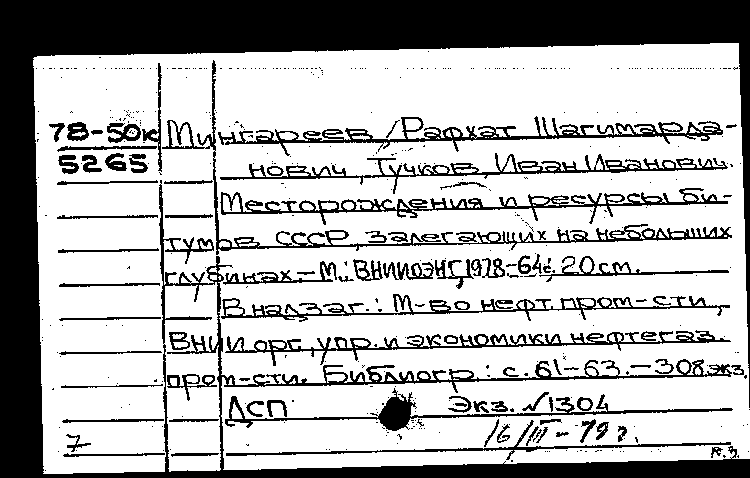 78-50к Мингареев, Рафхат Шагимарда-
5265 нович, Тучков, Иван Иванович.
Месторождения и ресурсы би-
тумов СССР, залегающих на небольших
глубинах. - М.: ВНИИОЭНГ, 1978-64с., 20 см.
В надзаг.: М-во нефт. пром-сти,
ВНИИ орг., упр. и экономики нефтегаз.
пром-сти. Библиогр.: с. 61-63. - 308 экз.
ДСП Экз. №1304
7 16/III-79г.